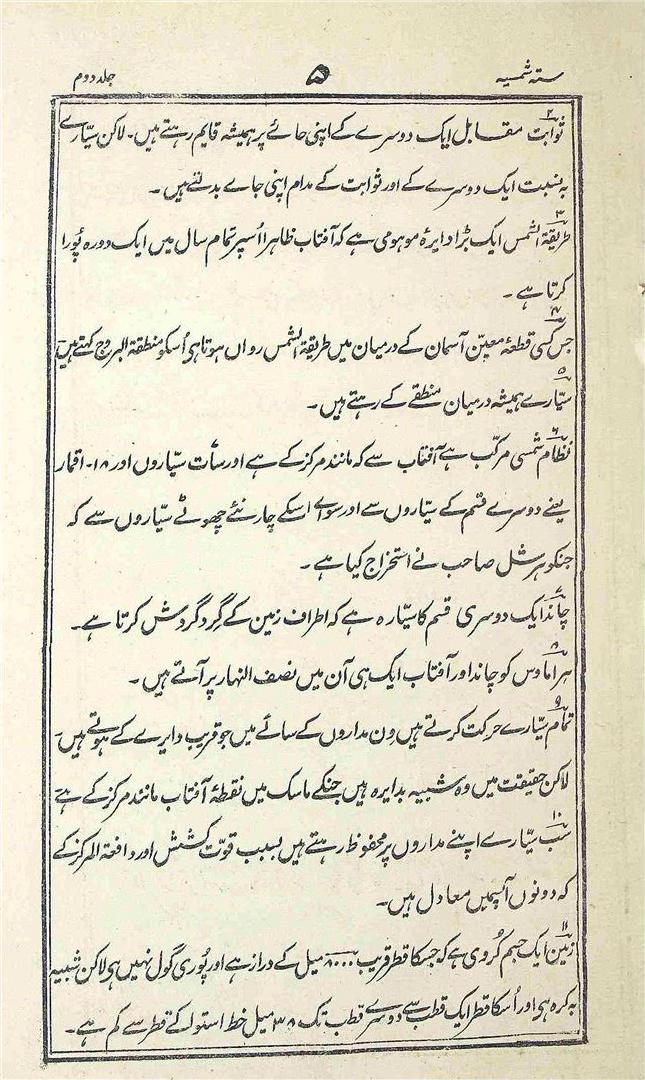 ستہ شمسیہ ۵ جلد دوم
۲ ثوابت مقابل ایک دوسرے کے اپنی جائے پر ہمیشہ قایم رہتے ہیں۔ لاکن سیّارے
بہ نسبت ایک دوسرے کے اور ثوابت کے مدام اپنی جاے بدلتے ہیں۔
۳ طریقۃ الشمس ایک بڑا دایرہ موہومی ہے کہ آفتاب ظاہرا اُسپر تمام سال میں ایک دورہ پُورا
کرتا ہے۔
۴ جس کسی قطعۂ معیّن آسمان کے درمیان میں طریقۃ الشمس رواں ہوتا ہی اُسکو منطقۃ البروج کہتے ہیں۔
۵ سیّارے ہمیشہ درمیان منطقے کے رہتے ہیں۔
۶ نظام شمسی مرکّب ہے آفتاب سے کہ مانند مرکز کے ہے اور سات سیّاروں اور ۱۸۔ اقمار
یعنے دوسرے قسم کے سیّاروں سے اور سواے اسکے چار نئے چھوٹے سیّاروں سے کہ
جنکو ہرشل صاحب نے استخراج کیا ہے۔
۷ چاند ایک دوسری قسم کا سیّارہ ہے کہ اطراف زمین کے گِرد گردش کرتا ہے۔
۸ ہر اماوس کو چاند اور آفتاب ایک ہی آن میں نصف النہار پر آتے ہیں۔
۹ تمام سیّارے حرکت کرتے ہیں وِن مداروں کے سائے میں جو قریب دایرے کے ہوتے ہیں۔
لاکن حقیقت میں وہ شبیہ بدایرہ ہیں جنکے ماسک میں نقطۂ آفتاب مانند مرکز کے ہے
۱۰ سب سیّارے اپنے مداروں پر محفوظ رہتے ہیں بسبب قوّت کشش اور دافعۃ المرکز کے
کہ دونوں آپسمیں معادل ہیں۔
۱۱ زمین ایک جسم کُروی ہے کہ جسکا قطر قریب ۸۰۰۰ میل کے دراز ہے اور پُوری گول نہیں ہی لاکن شبیہ
بہ کرہ ہی اور اُسکا قطر ایک قطب سے دوسرے قطب تک ۳۸ میل خط استوا کے قطر سے کم ہے۔